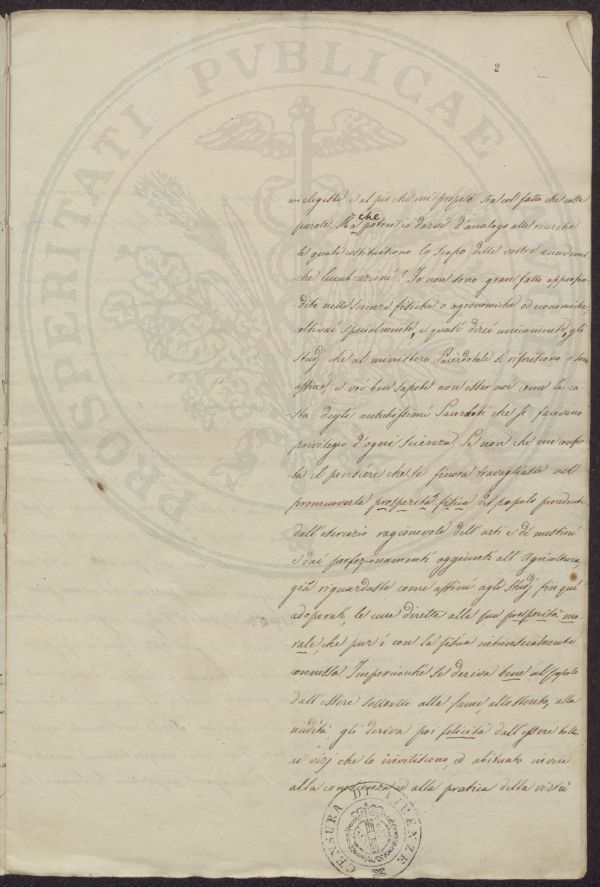 2
PROSPERITATI PVBLICAE
m'eleggeste e al pio che mi propose sta col fatto che colle
parole. Ma che potrei io darvi d'analogo alle ricerche
le quali costituiscono lo scopo delle vostre accademi
che lucubrazioni? Io non sono gran fatto approfon
dito nelle scienze fisiche o agronomiche od economiche
coltivai specialmente, e quasi direi unicamente, gli
studj che al ministero Sacerdotale si riferiscono o sono
affini, e voi ben sapete non esser noi come la ca
sta degli antichissimi Sacerdoti che si facevano
privilegio d'ogni scienza. Se non che mi confor
ta il pensiere che se finora travagliaste nel
promuovere la prosperità fisica del popolo procedente
dall'esercizio ragionevole dell'arti e de' mestieri
e dai perfezionamenti aggiunti all'Agricoltura,
già riguardaste come affini agli studj fin qui
adoperati, le cure dirette alla sua prosperità mo
rale, che pur è con la fisica intrinsecamente
connessa. Imperciocchè se deriva bene al popolo
dall'essere sottratto alla fame, allo stento, alla
nudità, gli deriva poi felicità dall'essere tolto
ai vizj che lo inviliscono, ed abituato invece
alla conoscenza ed alla pratica della virtù
CENSURA DI FIRENZE